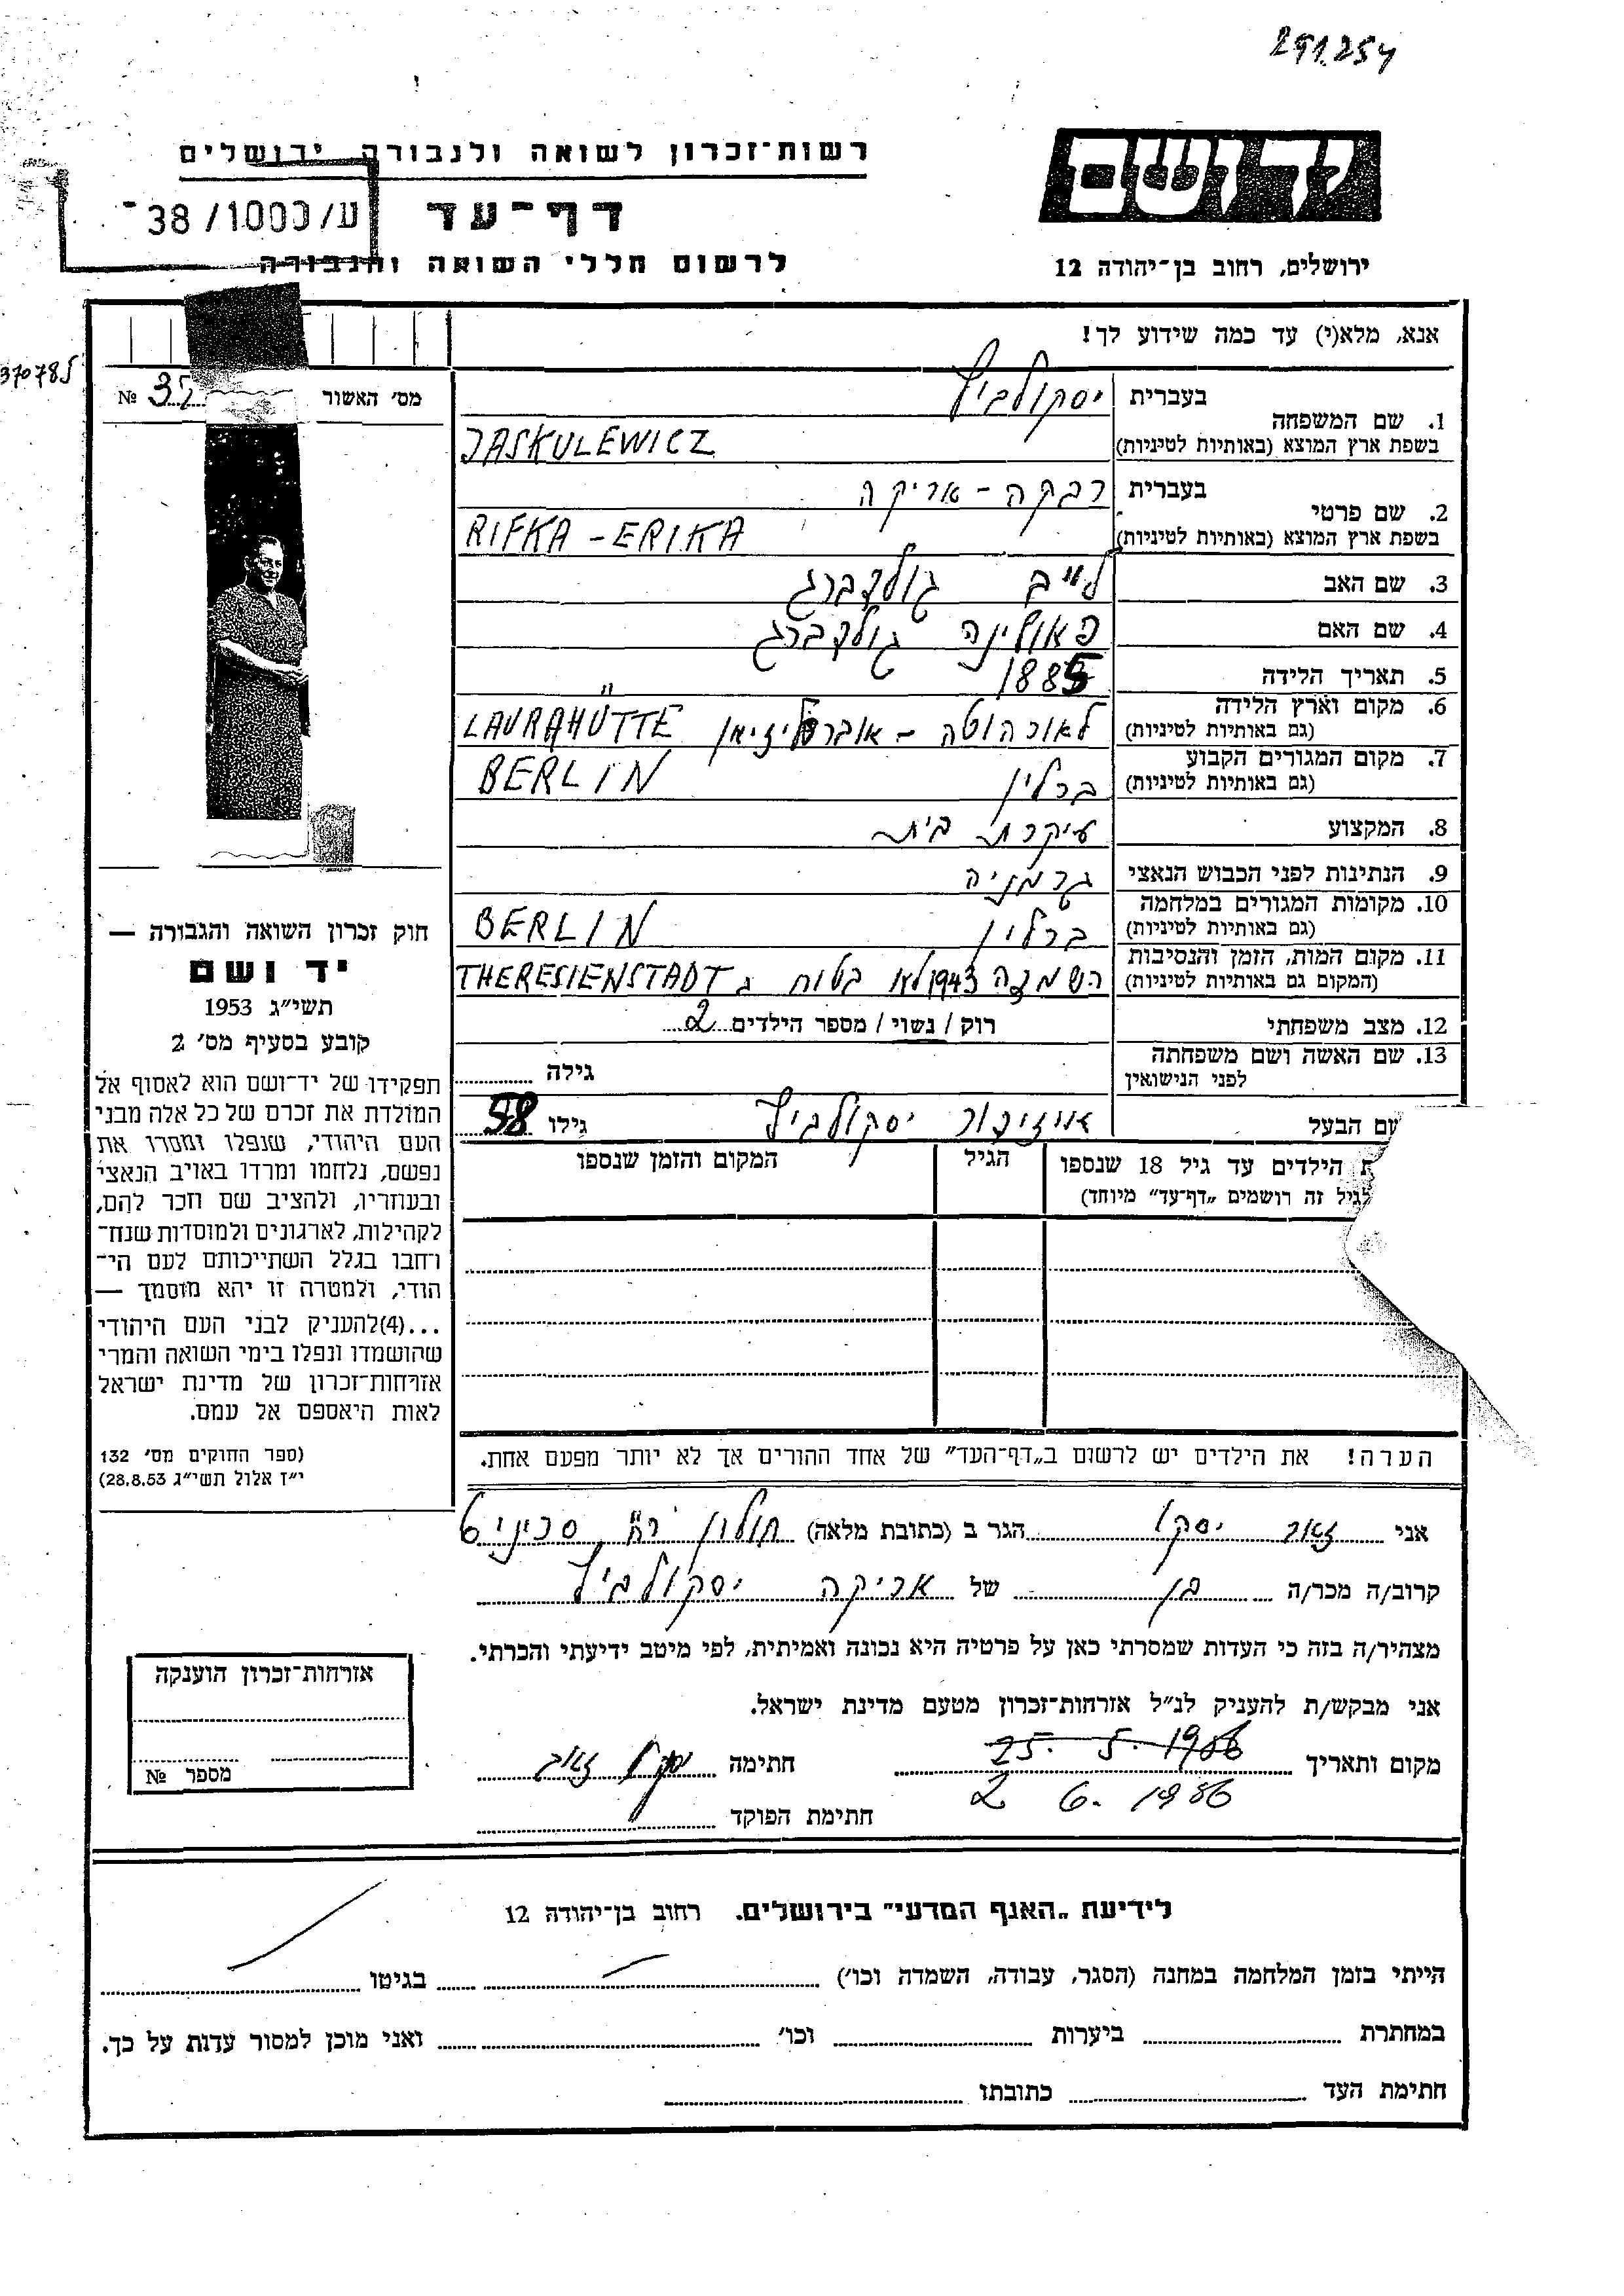 291.254
יד ושם
ירושלים, רחוב בן־יהודה 12
רשות־זכרון לשואה ולגבורה ירושלים
דף־עד
ע/1000/38
לרשום חללי השואה והגבורה
אנא, מלא(י) עד כמה שידוע לך!
1. שם המשפחה
בעברית יסקולביץ
בשפת ארץ המוצא (באותיות לטיניות) JASKULEWICZ
2. שם פרטי
בעברית רבקה - אריקה
בשפת ארץ המוצא (באותיות לטיניות) RIFKA - ERIKA
3. שם האב לייב גולדברג
4. שם האם פאולינה גולדברג
5. תאריך הלידה 1885
6. מקום וארץ הלידה
(גם באותיות לטיניות) לאורהוטה - LAURAHÜTTE
7. מקום המגורים הקבוע
(גם באותיות לטיניות) ברלין BERLIN
8. המקצוע עיקרת בית
9. הנתינות לפני הכבוש הנאצי גרמניה
10. מקומות המגורים במלחמה
(גם באותיות לטיניות) ברלין BERLIN
11. מקום המות, הזמן והנסיבות
(המקום גם באותיות לטיניות) השמדה 1943 לא בטוח ב THERESIENSTADT
12. מצב משפחתי רוק / נשוי / מספר הילדים 2
13. שם האשה ושם משפחתה
לפני הנישואין גילה
שם הבעל איזידור יסקולביץ גילו 58
הילדים עד גיל 18 שנספו הגיל המקום והזמן שנספו
לגיל זה רושמים „דף־עד״ מיוחד)
הערה! את הילדים יש לרשום ב„דף־העד״ של אחד ההורים אך לא יותר מפעם אחת.
אני זאב יסקו הגר ב (כתובת מלאה) חולון רח סביניס 6
קרוב/ה מכר/ה בן של אריקה יסקולביץ
מצהיר/ה בזה כי העדות שמסרתי כאן על פרטיה היא נכונה ואמיתית, לפי מיטב ידיעתי והכרתי.
אני מבקש/ת להעניק לנ״ל אזרחות־זכרון מטעם מדינת ישראל.
מקום ותאריך 25. 5. 1986 חתימה יסקו זאב
2 6. 1986
חתימת הפוקד
37078
מס׳ האשור № 35
חוק זכרון השואה והגבורה —
יד ושם
תשי״ג 1953
קובע בסעיף מס׳ 2
תפקידו של יד־ושם הוא לאסוף אל
המולדת את זכרם של כל אלה מבני
העם היהודי, שנפלו ומסרו את
נפשם, נלחמו ומרדו באויב הנאצי
ובעוזריו, ולהציב שם וזכר להם,
לקהילות, לארגונים ולמוסדות שנח־
רחבו בגלל השתייכותם לעם הי־
הודי, ולמטרה זו יהא מוסמך —
...(4)להעניק לבני העם היהודי
שהושמדו ונפלו בימי השואה והמרי
אזרחות־זכרון של מדינת ישראל
לאות היאספם אל עמם.
(ספר החוקים מס׳ 132
י״ז אלול תשי״ג 28.8.53)
אזרחות־זכרון הוענקה
מספר №
לידיעת „האגף המדעי״ בירושלים. רחוב בן־יהודה 12
הייתי בזמן המלחמה במחנה (הסגר, עבודה, השמדה וכו׳) בגיטו
במחתרת ביערות וכו׳ ואני מוכן למסור עדות על כך.
חתימת העד כתובתו